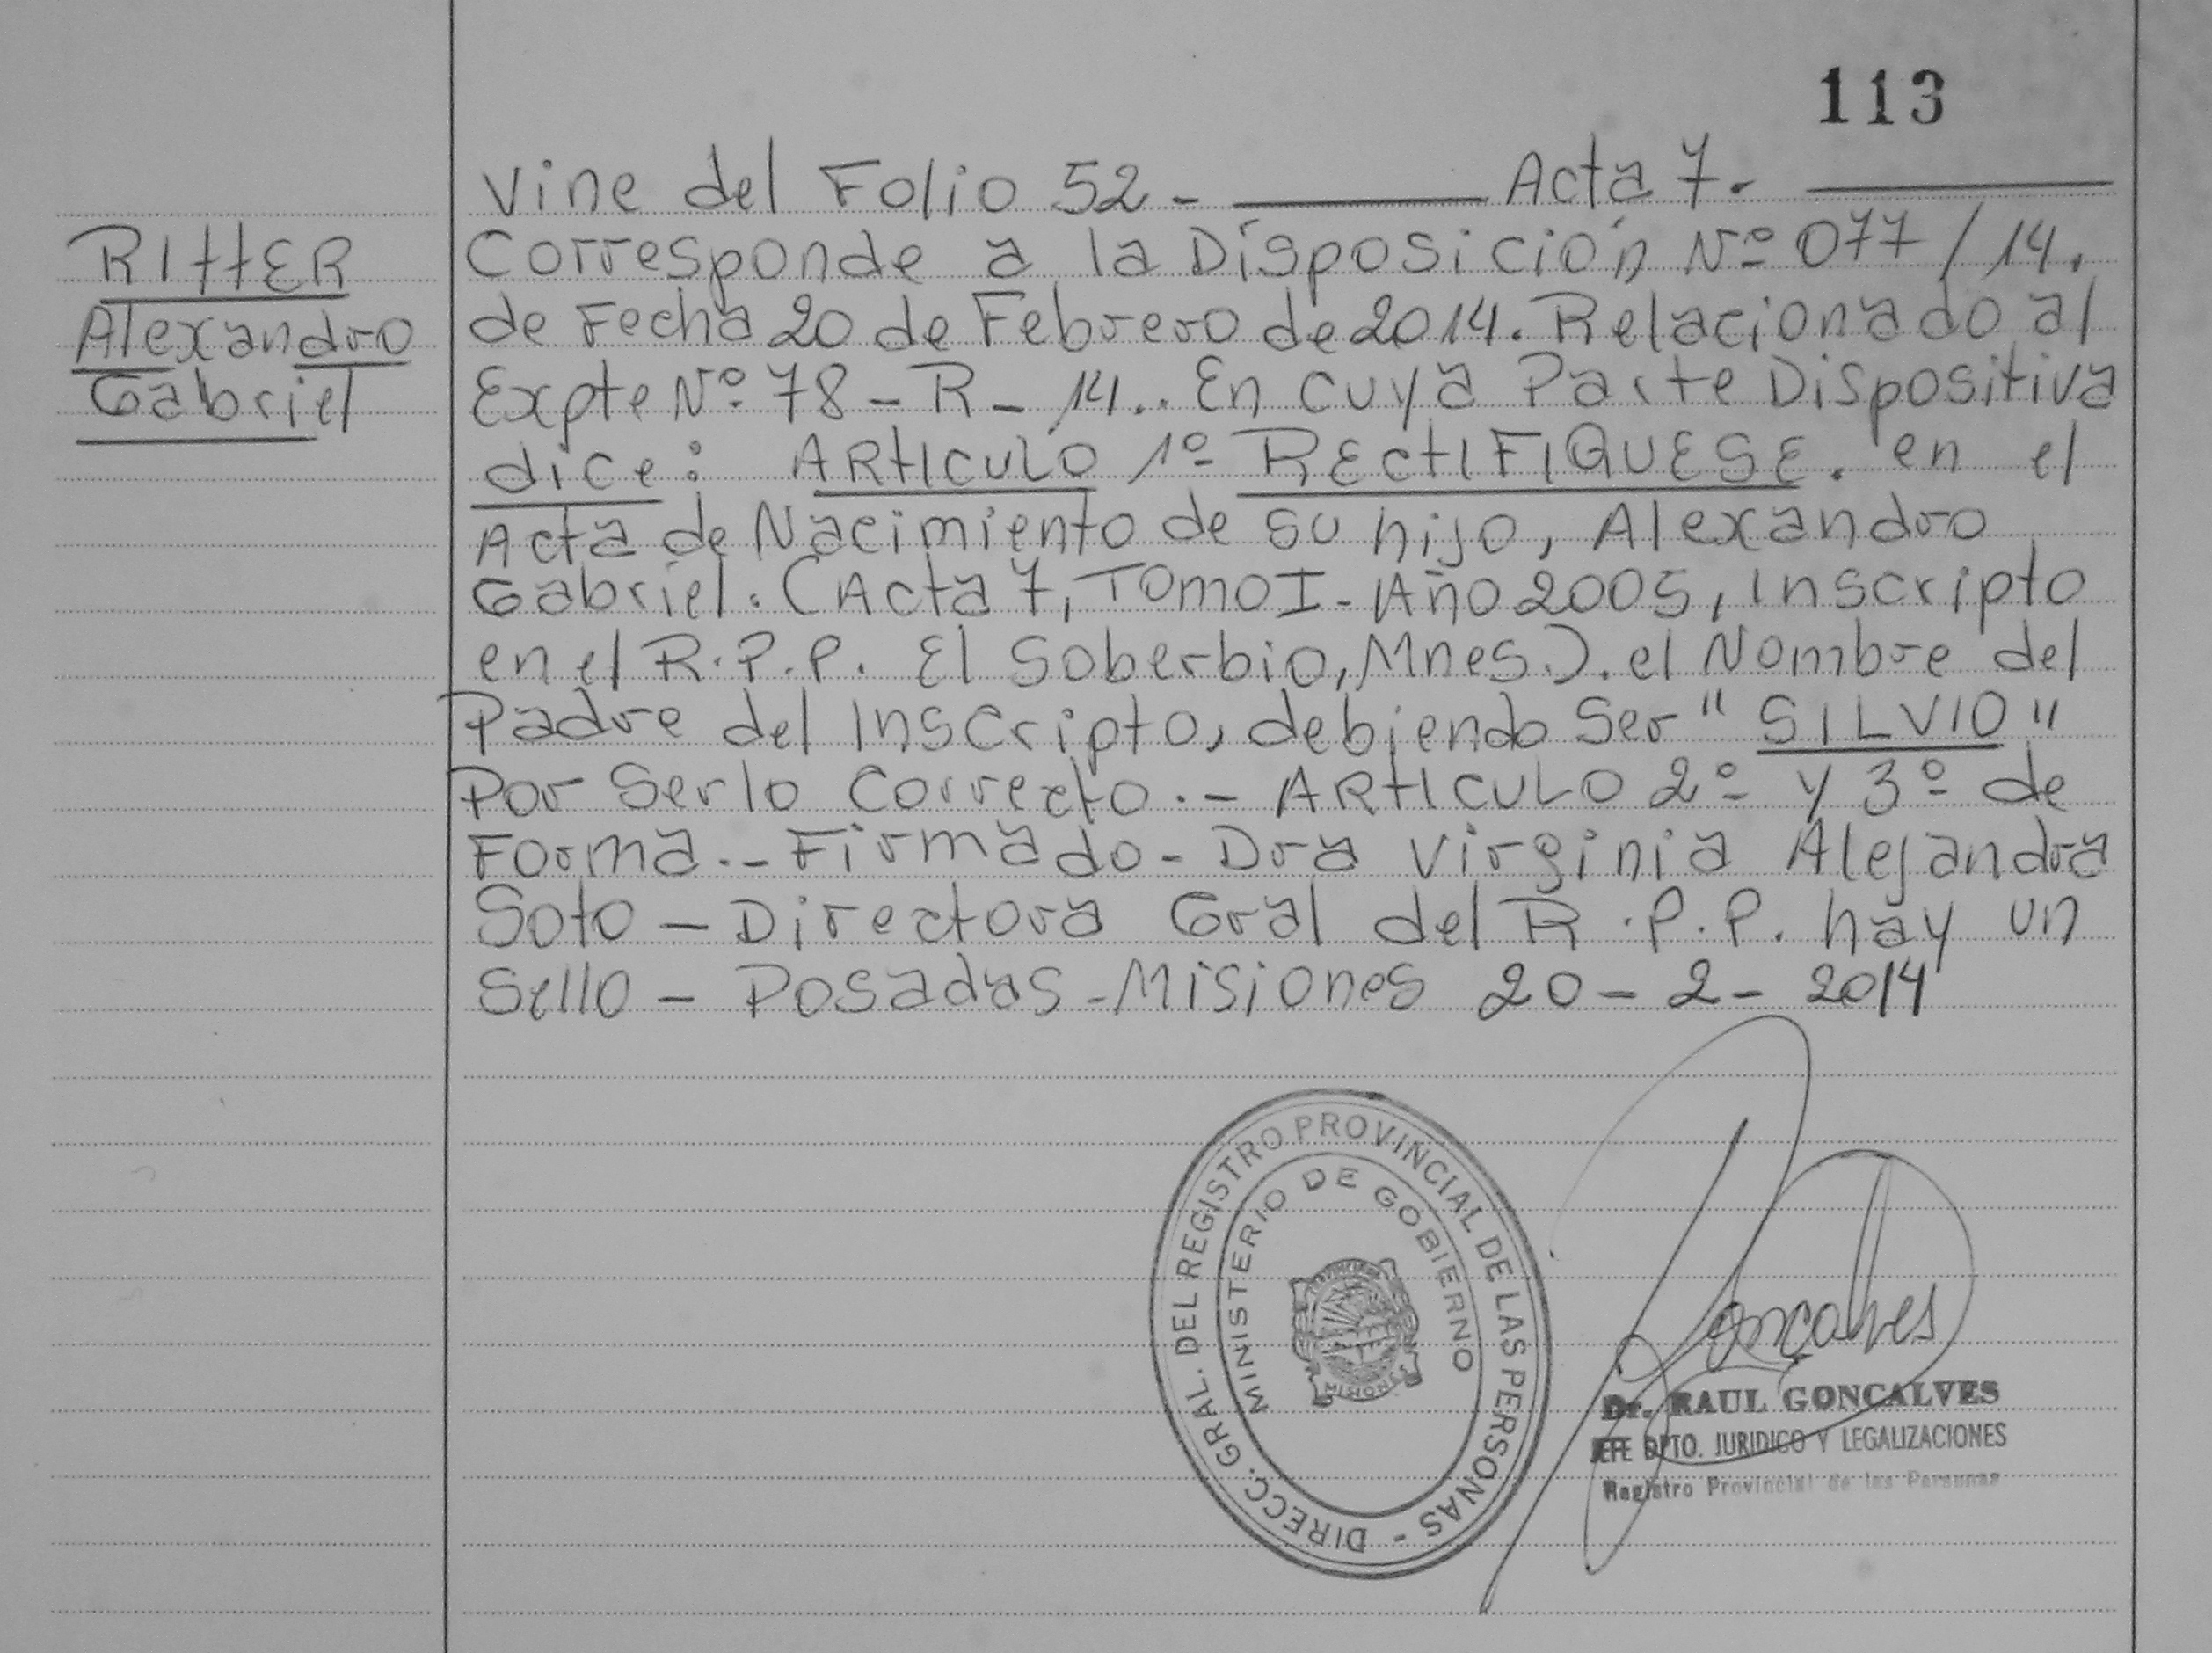 113
Vine del Folio 52 - Acta 7.
RIttER
Alexandro
Gabriel
Corresponde a la Disposición Nº 077/14.
de Fecha 20 de Febrero de 2014. Relacionado al
Expte Nº 78 - R - 14.. En cuya Parte Dispositiva
dice: ARTICULO 1º RECTIFIQUESE. en el
Acta de Nacimiento de su hijo, Alexandro
Gabriel. (Acta 7, Tomo I - Año 2005, Inscripto
en el R.P.P. El Soberbio, Mnes.). el Nombre del
Padre del Inscripto, debiendo Ser "SILVIO"
Por Serlo Correcto.- ARTICULO 2º y 3º de
Forma.- Firmado - Dra Virginia Alejandra
Soto - Directora Gral del R.P.P. hay un
Sello - Posadas - Misiones 20 - 2 - 2014
DIRECC. GRAL. DEL REGISTRO PROVINCIAL DE LAS PERSONAS -
MINISTERIO DE GOBIERNO
MISIONES
Gonçalves
Dr. RAUL GONCALVES
JEFE DPTO. JURIDICO Y LEGALIZACIONES
Registro Provincial de las Personas